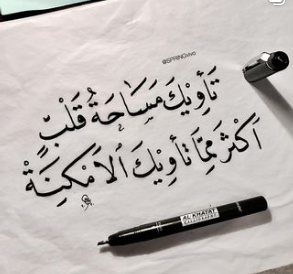 @SPRINGviva
تَأوِيكَ مَسَاحَةُ قَلْبٍ
اَكثَرَ مِمَّا تَأوِيكَ الاَمْكِنَةْ
AL KHATAT